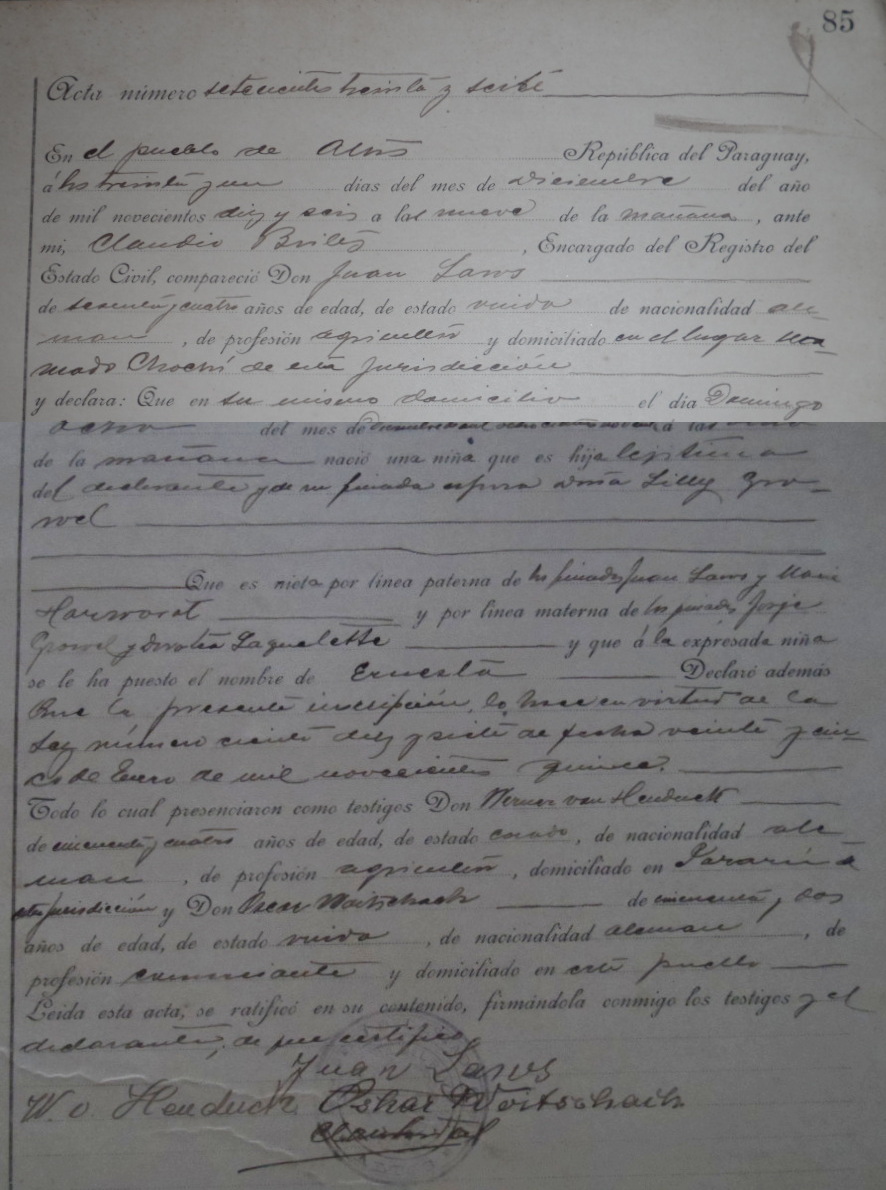 85
Acta número setecientos treinta y seité
En el pueblo de Altos República del Paraguay,
á los treinta y un dias del mes de Diciembre del año
de mil novecientos diez y seis a las nueve de la mañana, ante
mi, Claudio , Encargado del Registro del
Estado Civil, compareció Don Juan Laws
de sesenta y cuatro años de edad, de estado viudo de nacionalidad ale-
man, de profesión agricultor y domiciliado en el lugar lla-
mado de esta Jurisdicción
y declara: Que en su mismo domicilio el dia Domingo
ocho del mes de á las
de la mañana nació una niña que es hija legítima
del declarante y de su finada esposa Doña Lilly Gro-
wel
Que es nieta por línea paterna de los finados Juan Laws y Maria
y por línea materna de los finados Jorje
Growel y Dorotea y que á la expresada niña
se le ha puesto el nombre de Ernesta Declaró además
Que la presente inscripción, lo hace en virtud de la
Ley número ciento diez y siete de fecha veinte y cin-
co de Enero de mil novecientos quince.
Todo lo cual presenciaron como testigos Don Werner von
de cincuenta y cuatro años de edad, de estado casado, de nacionalidad ale
man, de profesión agricultor, domiciliado en
esta jurisdicción y Don Oscar Woitschach de cincuenta y dos
años de edad, de estado viudo, de nacionalidad aleman, de
profesión comerciante y domiciliado en este pueblo
Leida esta acta, se ratificó en su contenido, firmándola conmigo los testigos y el
declarante, de que certifico
Juan Laws
W. v. Oskar Woitschach